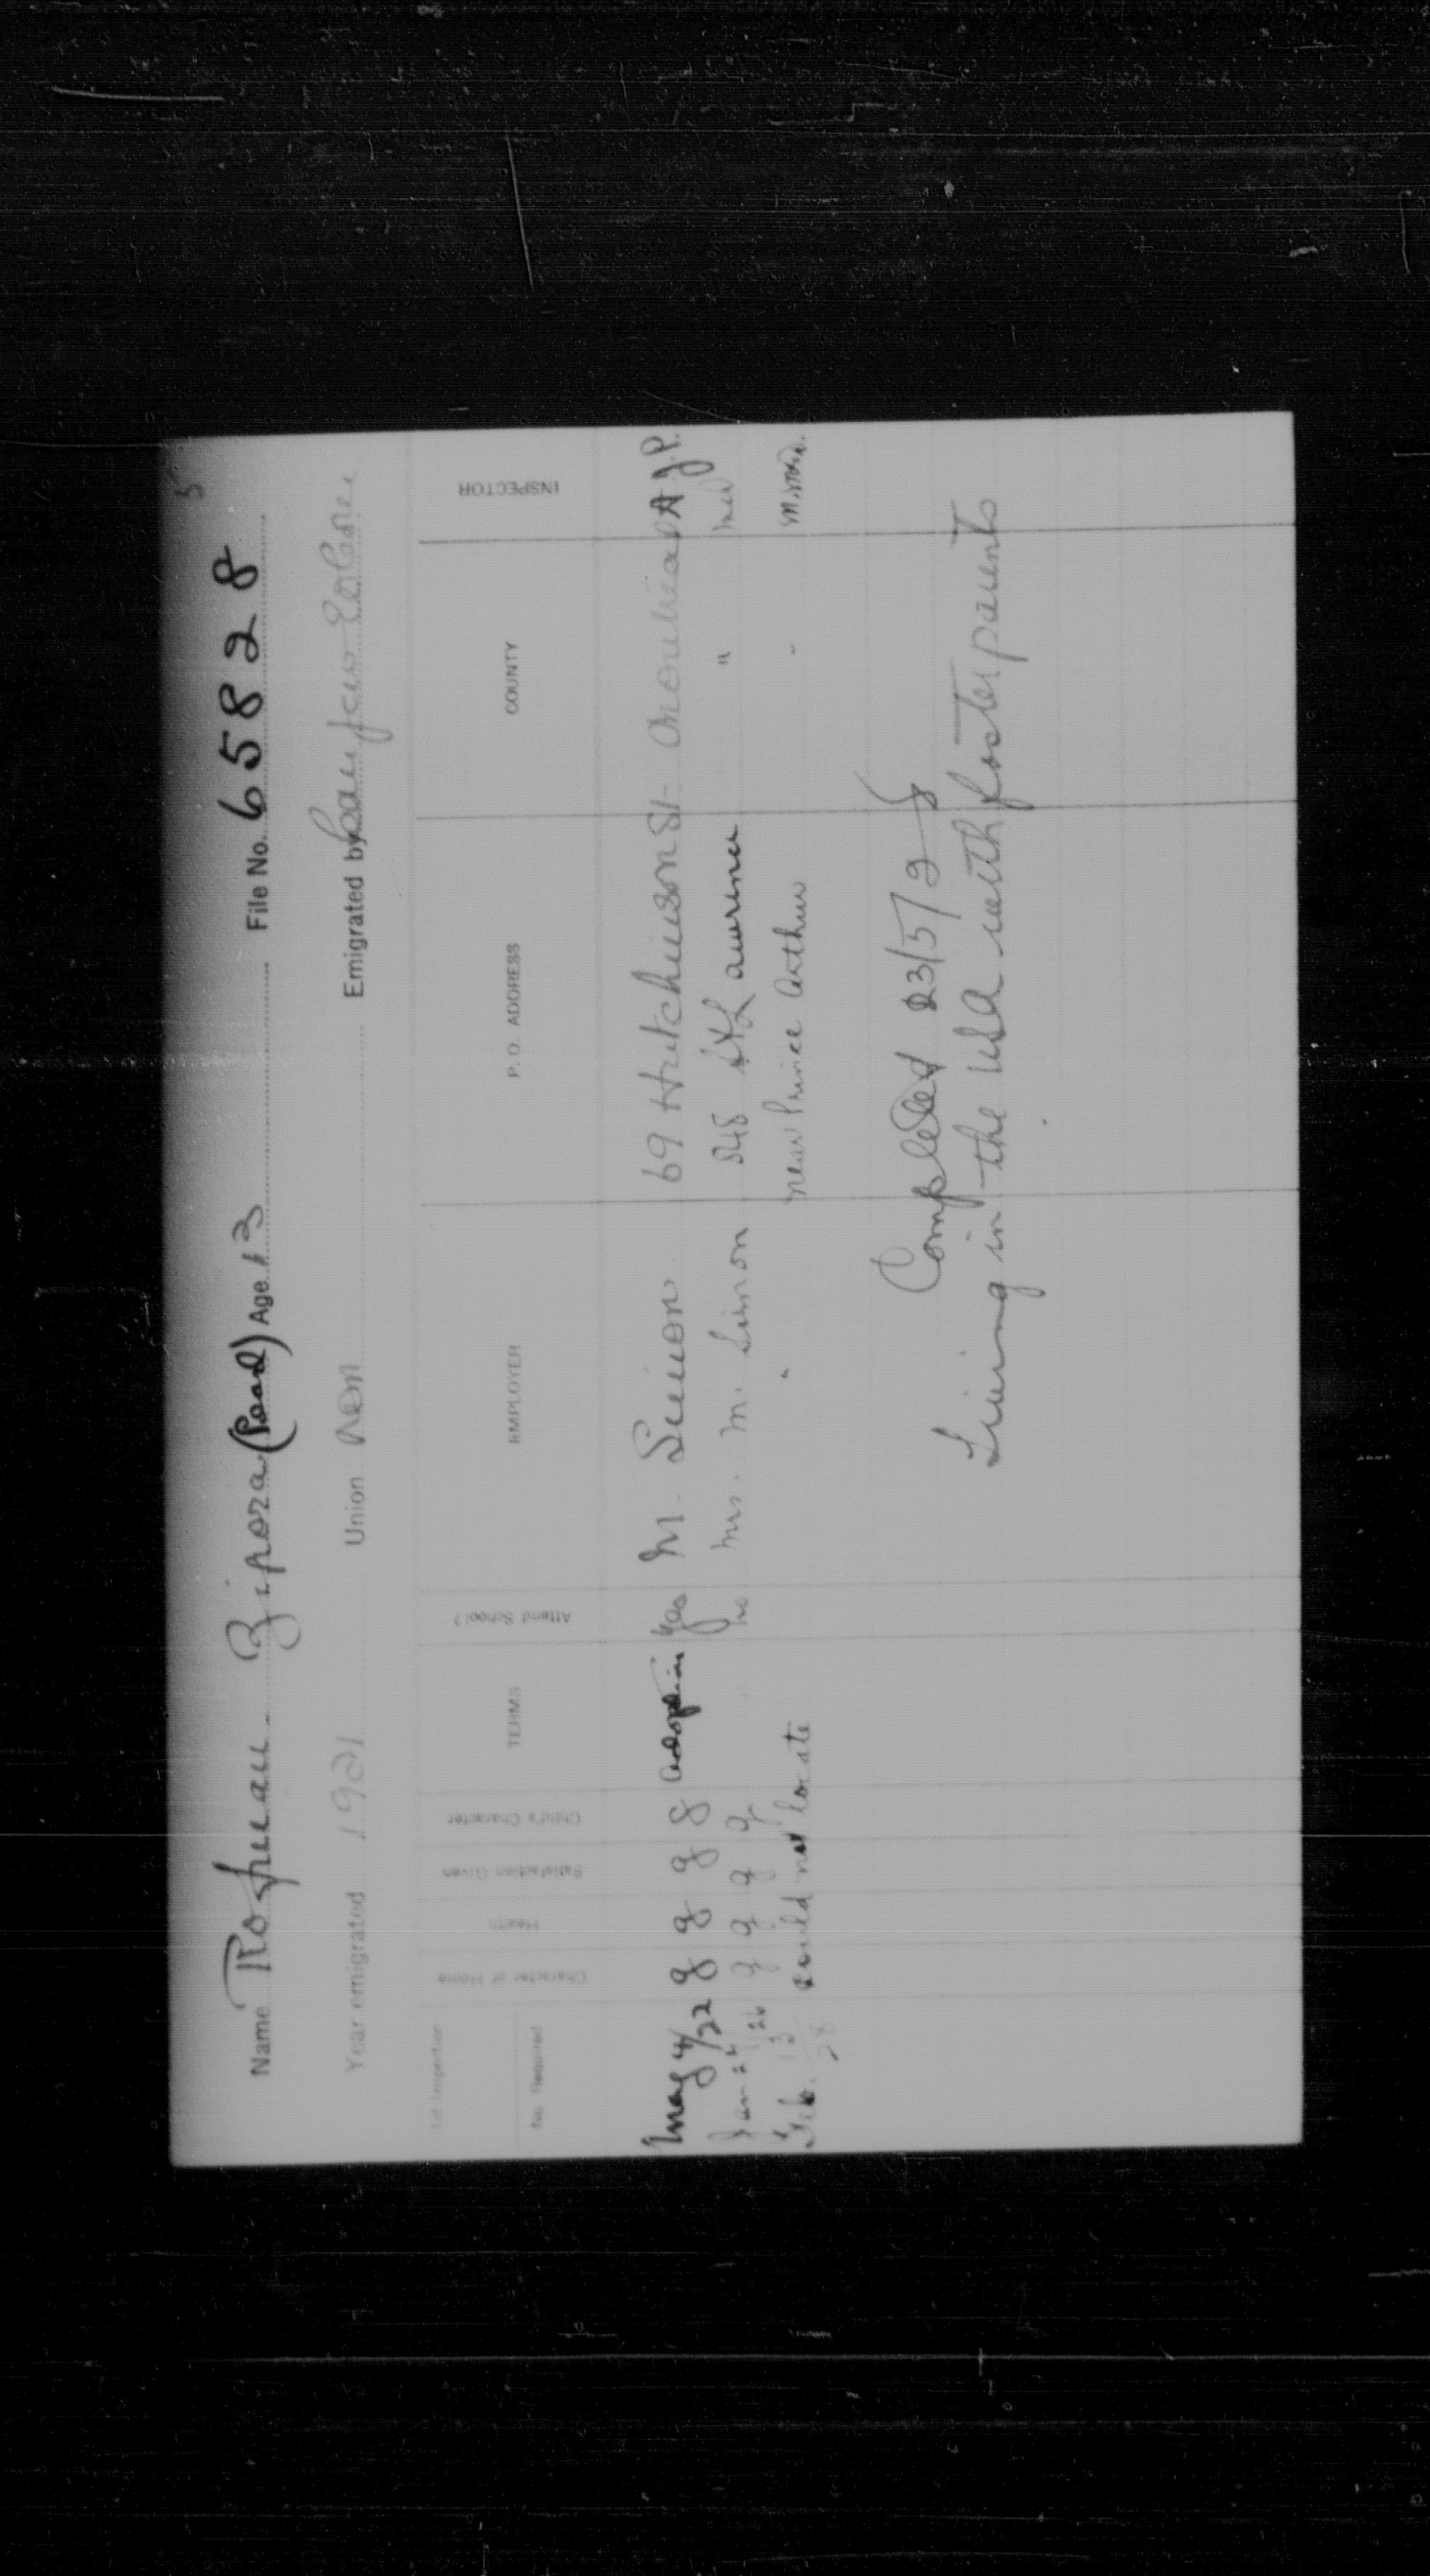 5
Name Rofman Zipora (Pearl) Age 13 File No. 65828
Year emigrated 1921 Union Non Emigrated by Can Jew
1st Inspection No. Required Character of Home Health Satisfaction Given Child's Character TERMS Attend School? EMPLOYER P. O. ADDRESS COUNTY INSPECTOR
May 4/22 g g g g adoption Yes M. Simon 69 Hutchinson St- Montreal A J P.
Jan 22 26 g g g g no Mrs. M Simon 848 St Lawrence "
Feb. 13 28 could not locate " near Prince Arthur -
Completed 23/5/28
Living in the USA with foster parents